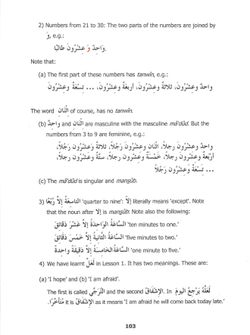 2) Numbers from 21 to 30: The two parts of the numbers are joined by
وَ, e.g.:
وَاحِدٌ وَ عِشْرُونَ طَالِبًا.
Note that:
(a) The first part of these numbers has tanwîn, e.g.:
واحِدٌ وعِشْرُونَ، ثَلاثَةٌ وعِشْرُونَ، أَرْبَعَةٌ وعِشْرُونَ، ... تِسْعَةٌ وعِشْرُونَ.
The word اثْنَانِ of course, has no tanwîn.
(b) وَاحِدٌ and اثْنَانِ are masculine with the masculine ma'dûd. But the
numbers from 3 to 9 are feminine, e.g.:
واحِدٌ وعِشْرُونَ رَجُلاً، اثْنَانِ وَعِشْرُونَ رَجُلاً، ثَلاثَةٌ وَعِشْرُونَ رَجُلاً،
أَرْبَعَةٌ وعِشْرُونَ رَجُلاً، خَمْسَةٌ وعِشْرُونَ رَجُلاً، سِتَّةٌ وعِشْرُونَ رَجُلاً،
... تِسْعَةٌ وعِشْرُونَ رَجُلاً
(c) The ma'dûd is singular and mansûb.
3) التاسعةُ إلاَّ رُبْعًا 'quarter to nine': إلاَّ literally means 'except'. Note
that the noun after إلاَّ is mansûb. Note also the following:
السَّاعَةُ الوَاحِدَةُ إلاَّ عَشْرَ دَقَائِقَ 'ten minutes to one.'
السَّاعَةُ الثَّانِيَةُ إلاَّ خَمْسَ دَقَائِقَ 'five minutes to two.'
السَّاعَةُ الخَامِسَةُ إلاَّ دَقِيقَةً وَاحِدَةً 'one minute to five.'
4) We have learnt لَعَلَّ in Lesson 1. It has two meanings. These are:
(a) 'I hope' and (b) 'I am afraid'.
The first is called التَّرَجِّي and the second الإشْفَاقُ. In لَعَلَّهُ يَرْجِعُ اليَوْمَ
مُتَأَخِّرًا it is الإشْفَاقُ as it means 'I am afraid he will come back today late.'
103